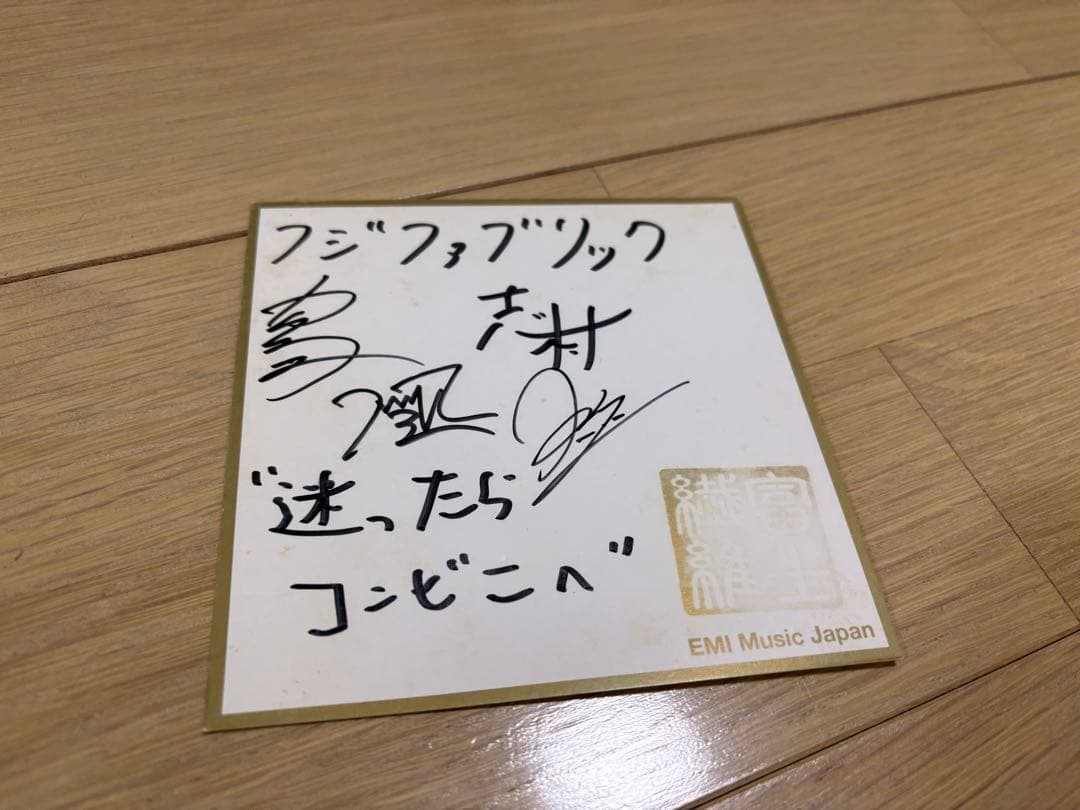 フジファブリック
志村
"迷ったら
コンビニへ"
富士
繊維
EMI Music Japan